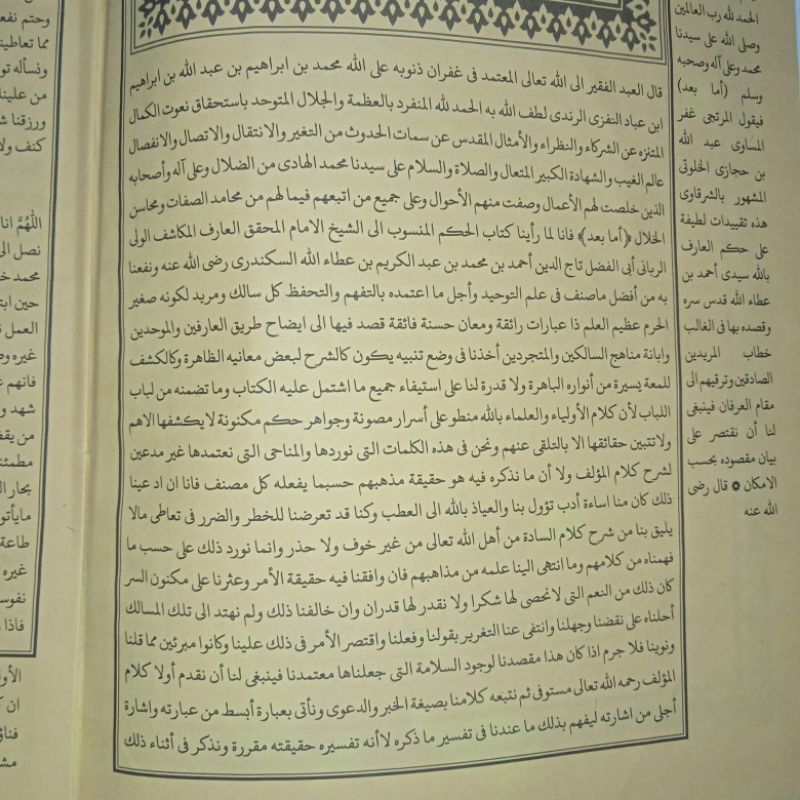 قال العبد الفقير الى الله تعالى المعتمد فى غفران ذنوبه على الله محمد بن ابراهيم بن عبد الله بن ابراهيم
ابن عباد النفزى الرندى لطف الله به الحمد لله المنفرد بالعظمة والجلال المتوحد باستحقاق نعوت الكمال
المتنزه عن الشركاء والنظراء والأمثال المقدس عن سمات الحدوث من التغير والانتقال والاتصال والانفصال
عالم الغيب والشهادة الكبير المتعال والصلاة والسلام على سيدنا محمد الهادى من الضلال وعلى آله وأصحابه
الذين خلصت لهم الأعمال وصفت منهم الأحوال وعلى جميع من اتبعهم فيما لهم من محامد الصفات ومحاسن
الخلال ﴿أما بعد﴾ فانا لما رأينا كتاب الحكم المنسوب الى الشيخ الامام المحقق العارف المكاشف الولى
الربانى أبى الفضل تاج الدين أحمد بن محمد بن عبد الكريم بن عطاء الله السكندرى رضى الله عنه ونفعنا
به من أفضل ماصنف فى علم التوحيد وأجل ما اعتمده بالتفهم والتحفظ كل سالك ومريد لكونه صغير
الجرم عظيم العلم ذا عبارات رائقة ومعان حسنة فائقة قصد فيها الى ايضاح طريق العارفين والموحدين
وابانة مناهج السالكين والمتجردين أخذنا فى وضع تنبيه يكون كالشرح لبعض معانيه الظاهرة وكالكشف
للمعة يسيرة من أنواره الباهرة ولا قدرة لنا على استيفاء جميع ما اشتمل عليه الكتاب وما تضمنه من لباب
اللباب لأن كلام الأولياء والعلماء بالله منطو على أسرار مصونة وجواهر حكم مكنونة لايكشفها الاهم
ولاتتبين حقائقها الا بالتلقى عنهم ونحن فى هذه الكلمات التى نوردها والمناحى التى نعتمدها غير مدعين
لشرح كلام المؤلف ولا أن ما نذكره فيه هو حقيقة مذهبهم حسبما يفعله كل مصنف فانا ان ادعينا
ذلك كان منا اساءة أدب تؤول بنا والعياذ بالله الى العطب وكنا قد تعرضنا للخطر والضرر فى تعاطى مالا
يليق بنا من شرح كلام السادة من أهل الله تعالى من غير خوف ولا حذر وانما نورد ذلك على حسب ما
فهمناه من كلامهم وما انتهى الينا علمه من مذاهبهم فان وافقنا فيه حقيقة الأمر وعثرنا على مكنون السر
كان ذلك من النعم التى لانحصى لها شكرا ولا نقدر لها قدران وان خالفنا ذلك ولم نهتد الى تلك المسالك
أحلناه على نقضنا وجهلنا وانتفى عنا التغرير بقولنا وفعلنا واقتصر الأمر فى ذلك علينا وكانوا مبرئين مما قلنا
ونوينا فلا جرم اذا كان هذا مقصدنا لوجود السلامة التى جعلناها معتمدنا فينبغى لنا أن نقدم أولا كلام
المؤلف رحمه الله تعالى مستوفى ثم نتبعه كلامنا بصيغة الخبر والدعوى ونأتى بعبارة أبسط من عبارته واشارة
أجلى من اشارته ليفهم بذلك ما عندنا فى تفسير ما ذكره لاأنه تفسيره حقيقته مقررة ونذكر فى أثناء ذلك
الحمد لله رب العالمين
وصلى الله على سيدنا
محمد وعلى آله وصحبه
وسلم (أما بعد)
فيقول المرتجى غفر
المساوى عبد الله
بن حجازى الخلوتى
المشهور بالشرقاوى
هذه تقييدات لطيفة
على حكم العارف
بالله سيدى أحمد بن
عطاء الله قدس سره
وقصده بها فى الغالب
خطاب المريدين
الصادقين وترقيهم الى
مقام العرفان فينبغى
لنا أن نقتصر على
بيان مقصوده بحسب
الامكان ۞ قال رضى
الله عنه
وحتم نفعه
مما تعاطينا
ونسأله
من علينا
ورزقنا
كنف ولا
اللهم انا
نصل الى
محمد
حين
العمل
غيره
فانهم
شهد
من
بحار
طاعة
غيره
فاذا
ان